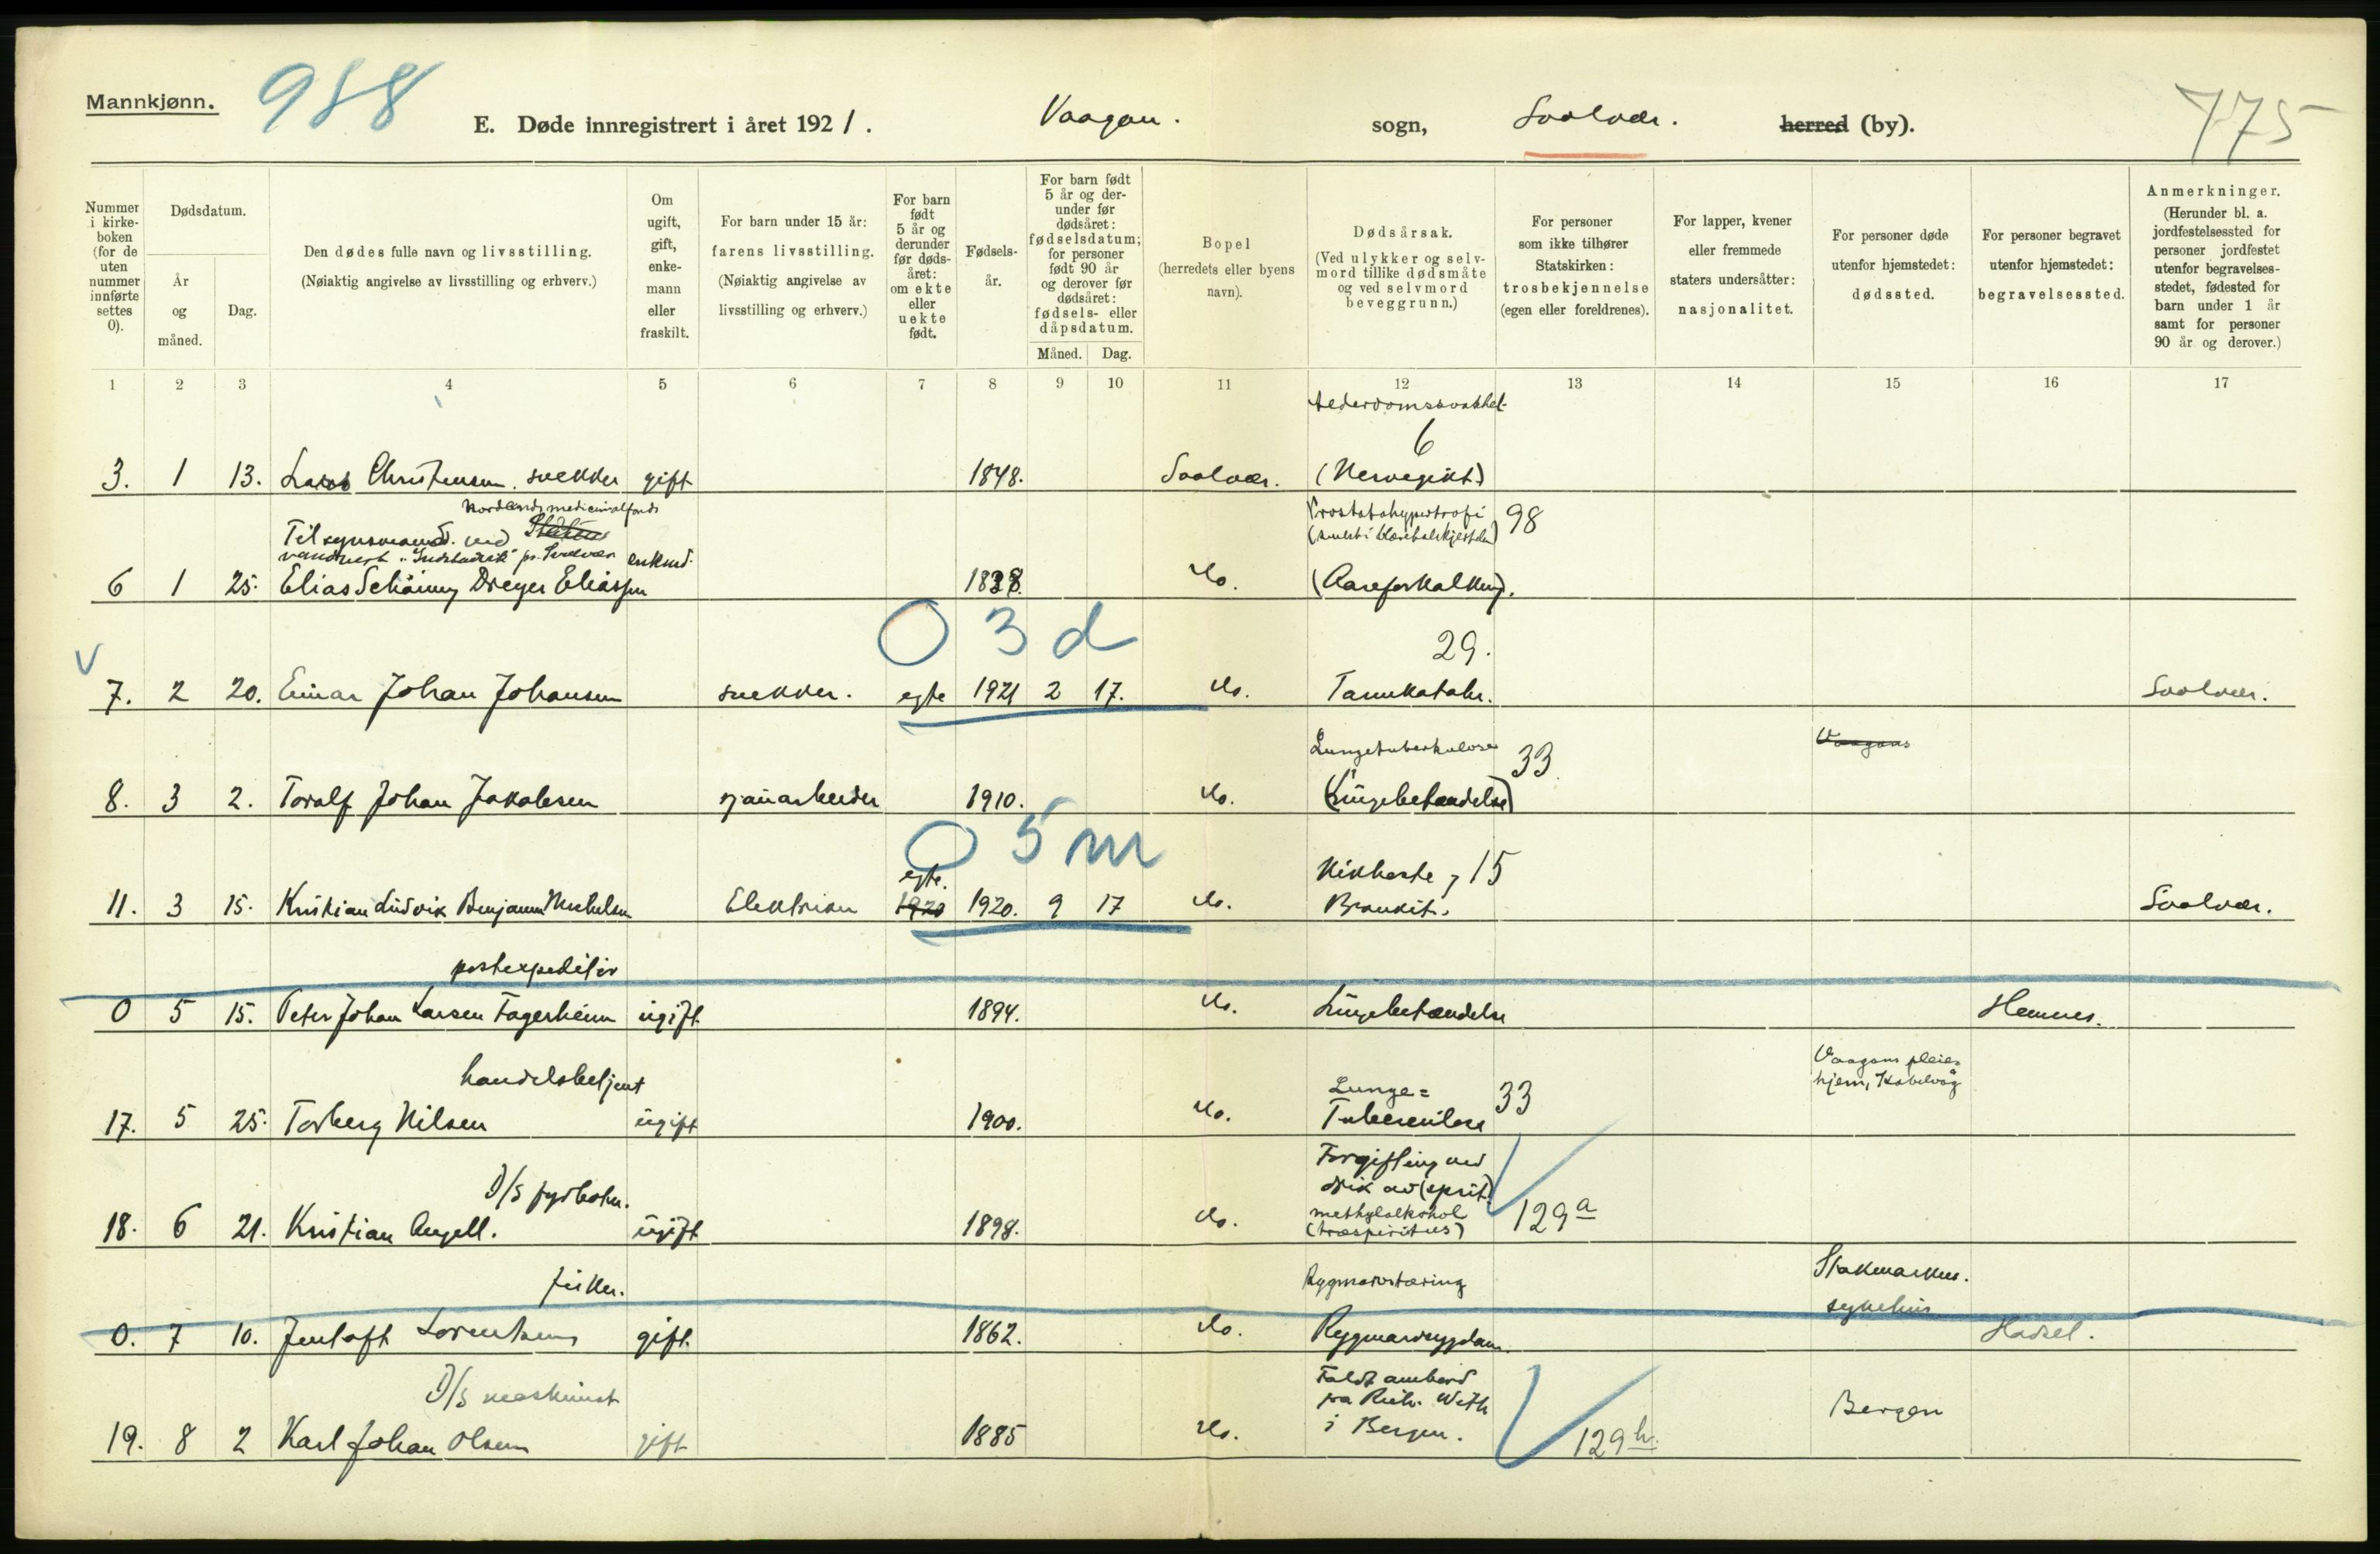 Mannkjønn.
988
E. Døde innregistrert i året 1921.
Vaagan.
sogn,
Svolvær.
herred (by).
775
Nummer i kirke-boken (for de uten nummer innførte settes 0).
Dødsdatum.
År og måned.
Dag.
Den dødes fulle navn og livsstilling.
(Nøiaktig angivelse av livsstilling og erhverv.)
Om ugift, gift, enke-mann eller fraskilt.
For barn under 15 år: farens livsstilling.
(Nøiaktig angivelse av livsstilling og erhverv.)
For barn født 5 år og derunder før døds-året: om ekte eller uekte født.
Fødsels-år.
For barn født 5 år og der-under før dødsåret: fødselsdatum; for personer født 90 år og derover før dødsåret: fødsels- eller dåpsdatum.
Måned.
Dag.
Bopel
(herredets eller byens navn).
Dødsårsak.
(Ved ulykker og selv-mord tillike dødsmåte og ved selvmord beveggrunn.)
For personer som ikke tilhører Statskirken: trosbekjennelse (egen eller foreldrenes).
For lapper, kvener eller fremmede staters undersåtter: nasjonalitet.
For personer døde utenfor hjemstedet: dødssted.
For personer begravet utenfor hjemstedet: begravelsessted.
Anmerkninger.
(Herunder bl. a. jordfestelsessted for personer jordfestet utenfor begravelses-stedet, fødested for barn under 1 år samt for personer 90 år og derover.)
1 2 3 4 5 6 7 8 9 10 11 12 13 14 15 16 17
6
3. 1 13. Christensen. snekker gift 1848. Svolvær. (Nervegikt.)
Nordlands medicinalfonds
Tilsynsmand ved
Prostatahypertrofi
98
enkemd.
6 1 25. Elias Schäning Dreyer Eliassen 1838. do. (Aareforkalkning).
0 3 d
29.
V
7. 2 20. Einar Johan Johansen snekker. egte 1921 2 17. do. Tarmkatahr. Svolvær.
Lungetuberkulose 33 Vaagans
8. 3 2. Toralf Johan Jakobsen sjauarbeider 1910. do. (Lungebetændelse)
0 5 m
egte.
Kikhoste, 15
11. 3 15. Kristian Ludvik Benjamin Michelsen Elektriker 1920 1920. 9 17 do. Bronkit. Svolvær.
postexpeditør
0 5 15. Peter Johan Larsen Fagerheim ugift 1894. do. Lungebetændelse Hemnes.
handelsbetjent
Vaagans pleie-
hjem, Kabelvåg
Lunge=
33
17. 5 25. Torberg Nilsen ugift 1900. do. Tuberculose
Forgiftning ved
D/S fyrbøter.
drik av (sprit)
methylalkohol
129a
18. 6 21. Kristian Angell. ugift 1898. do. (træspiritus)
fisker.
Rygmarvstæring
Stokmarknes.
sykehus
0. 7 10. Jentoft Lorentsen gift 1862. do. Rygmarvsygdom. Hadsel.
D/S maskinist
Faldt ombord
fra Rich. With
i Bergen.
Bergen
129h.
19. 8 2 Karl Johan Olsen gift 1885 do.